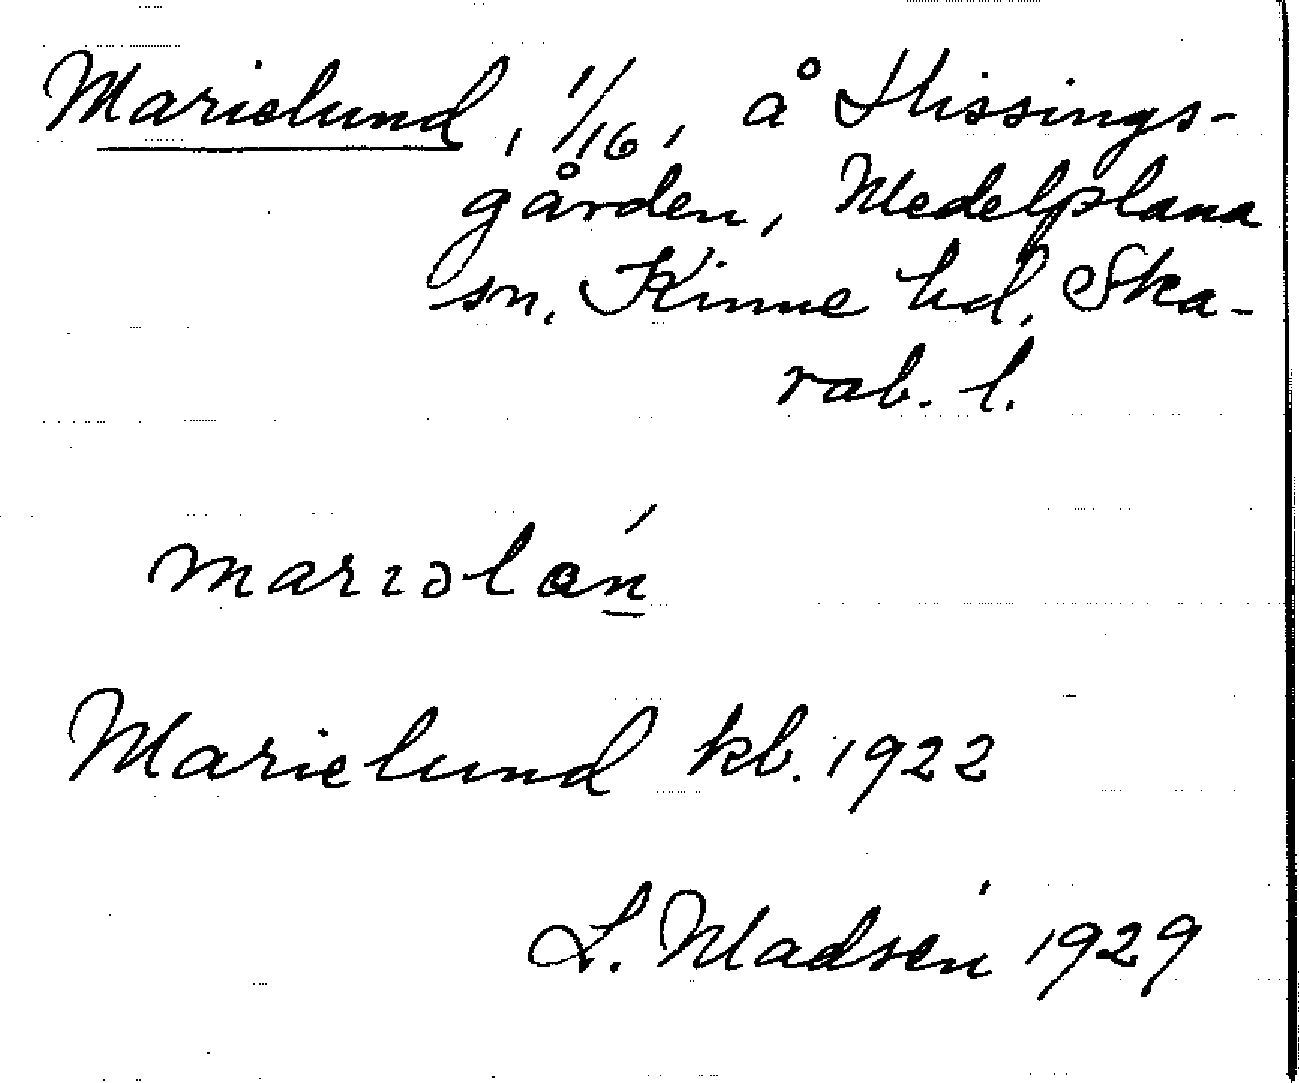 Marielund, 1/16, å Hissings-
gården, Medelplana
sn, Kinne hd, Ska-
rab. l.
marɪəlán
Marielund kb. 1922
L. Madsén 1929